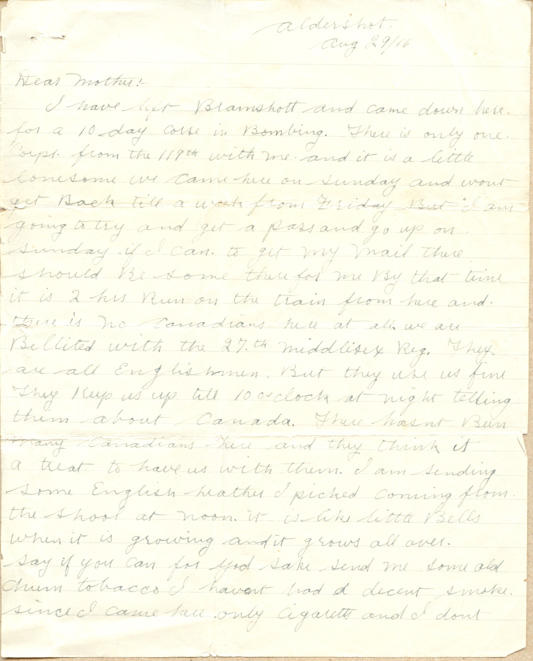 Aldershot.
Aug 29/16
Dear Mother:-
I have left Bramshott and came down here.
for a 10 day corse in Bombing. There is only one.
Corpl. from the 119th with me. and it is a little
lonesome we came here on Sunday and wont
get Back till a week from Friday But I am
going to try and get a pass and go up on
Sunday if I can. to get my mail there
should Be some there for me By that time
it is 2 hrs Run on the train from here and.
there is no Canadians here at all. we are
Billited with the 27th Middlesex Reg. They
are all Englishmen. But they use us fine
They Keep us up till 10 oclock at night telling
them about Canada. There hasnt Bun
many Canadians here and they think it
a treat to have us with them. I am sending
some English heather I picked coming from
the shoot at noon. it is like little Bells
when it is growing and it grows all over.
Say if you can for god sake send me some old
chum tobacco I havent had a decent smoke.
since I came here. only Cigarett and I dont